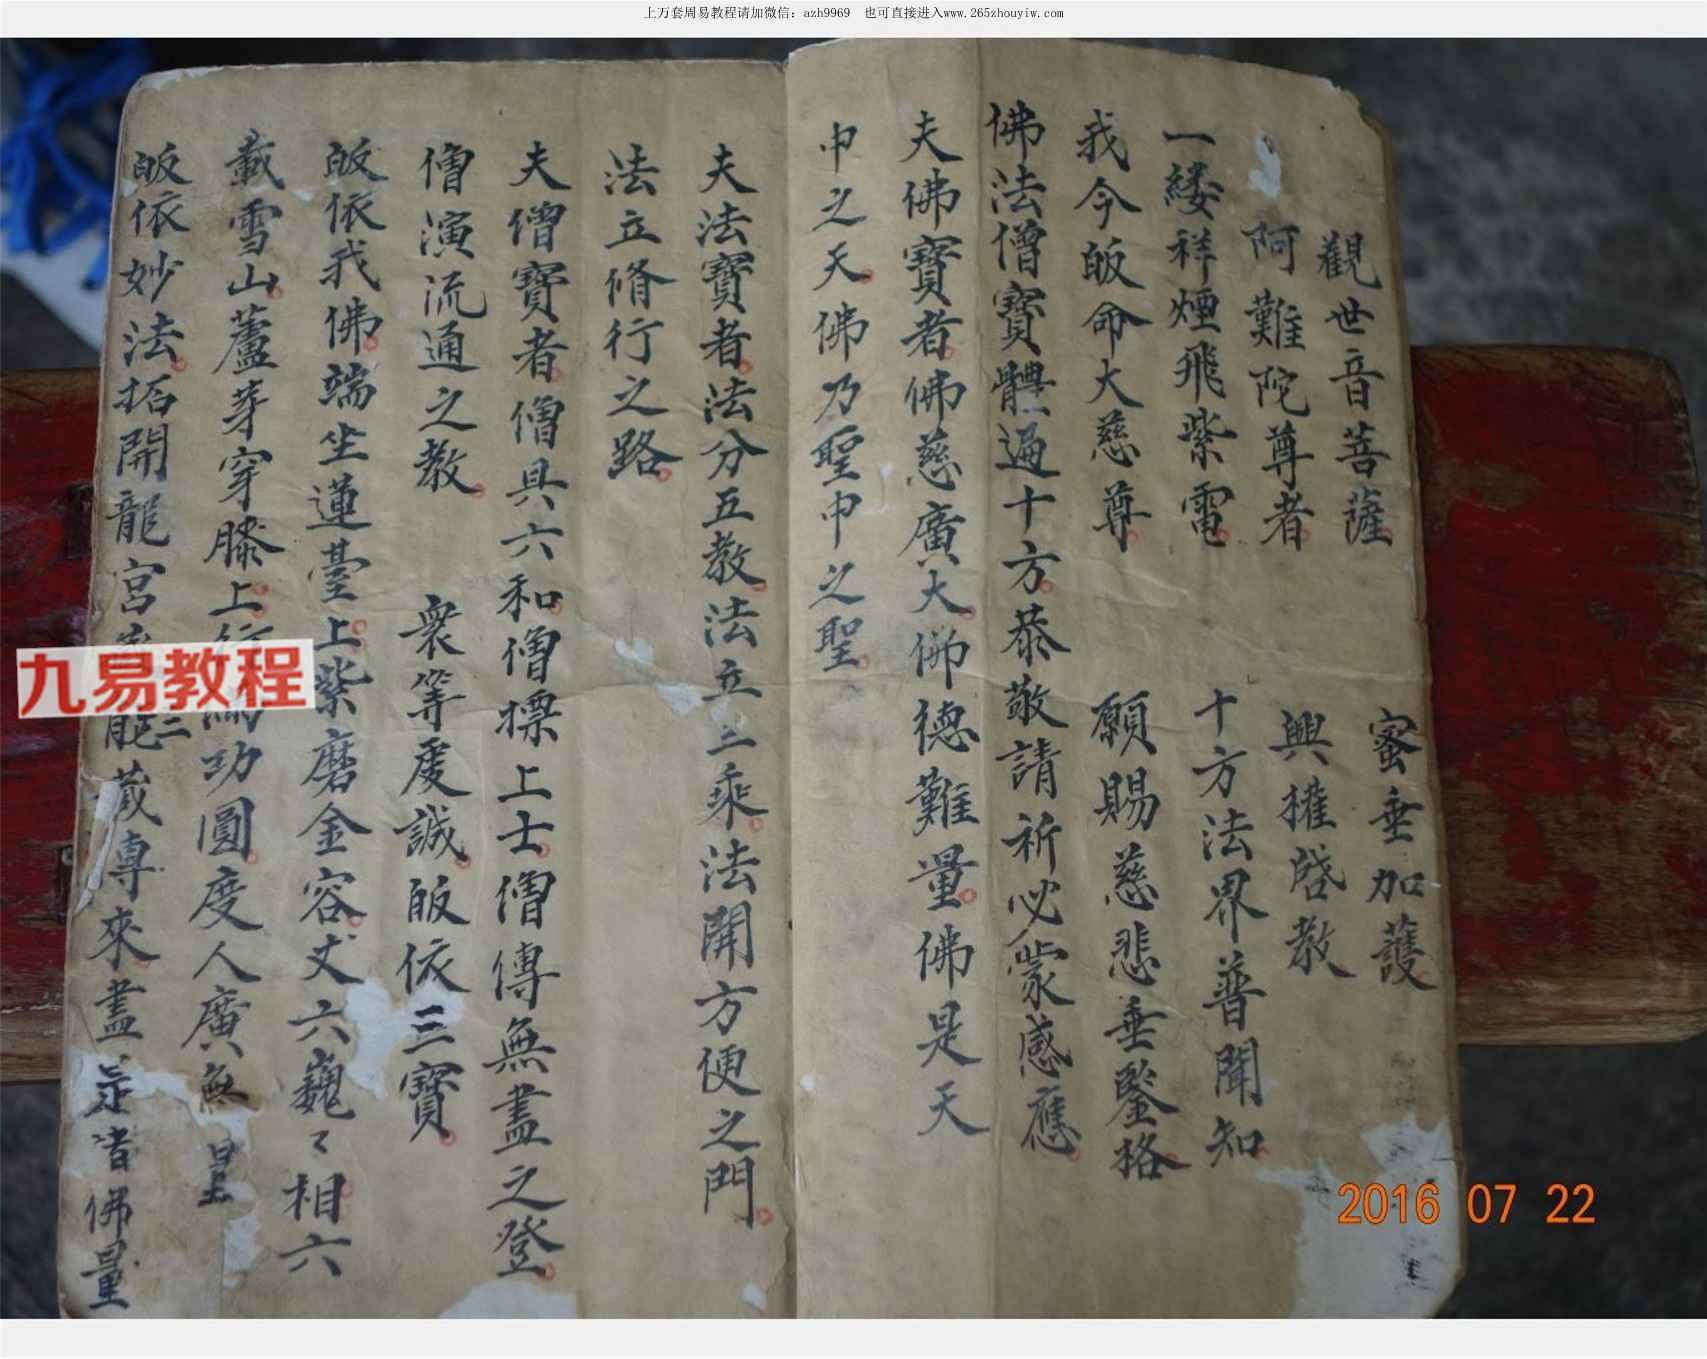 上万套周易教程请加微信：azh9969　也可直接进入www.265zhouyiw.com
觀世音菩薩　蜜垂加護
阿難陀尊者　興權啓教
一縷祥煙飛紫電　十方法界普聞知
我今皈命大慈尊　願賜慈悲垂鑒格
佛法僧寶體遍十方恭敬請祈必蒙感應
夫佛寶者佛慈廣大佛德難量佛是天
中之天佛乃聖中之聖
夫法寶者法分五教法立三乘法開方便之門
法立脩行之路
夫僧寶者僧具六和僧標上士僧傳無盡之登
僧演流通之教　衆等虔誠皈依三寶
皈依我佛端坐蓮臺上紫磨金容丈六巍〻相六
載雪山蘆芽穿膝上行功圓度人廣無
皈依妙法拓開龍宮龍藏專來盡是佛量
九易教程
2016 07 22